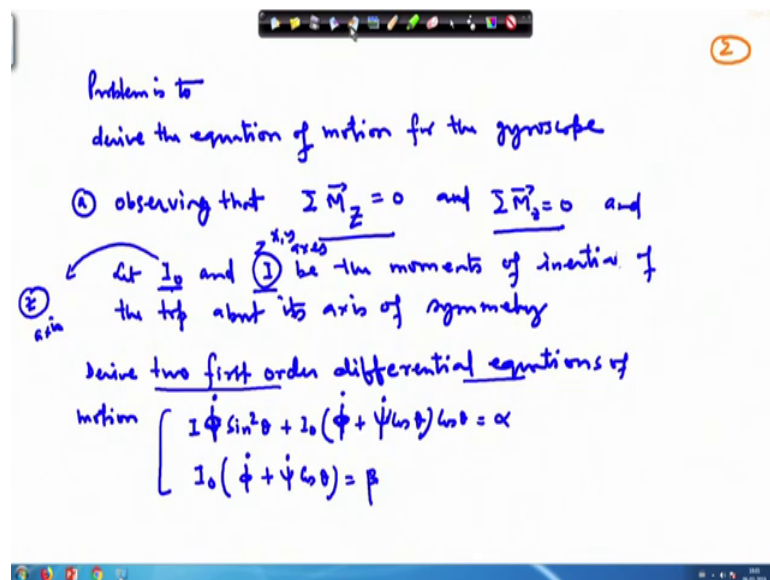 2
Problem is to
derive the equation of motion for the gyroscope
ⓐ observing that Σ M⃗_Z = 0 and Σ M⃗_z = 0 and
x, y axes
Let I₀ and I be the moments of inertia of
z axis
the top about its axis of symmetry
Derive two first order differential equations of
motion [ I φ̇ sin²θ + I₀ (φ̇ + ψ̇ cos θ) cos θ = α
I₀ (φ̇ + ψ̇ cos θ) = β